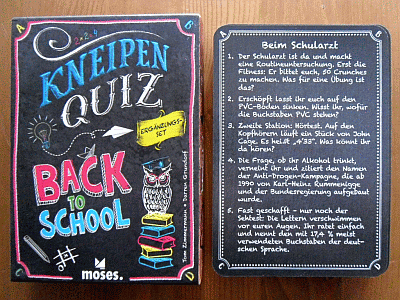 A
B
2 × 2 = 4
KNEIPEN
QUIZ
ERGÄNZUNGS-
SET
BACK
TO
SCHOOL
Tom Zimmermann • Dorten Grundorf
moses.
C
D
A
B
Beim Schularzt
1. Der Schularzt ist da und macht
eine Routineuntersuchung. Erst die
Fitness: Er bittet euch, 50 Crunches
zu machen. Was für eine Übung ist
das?
2. Erschöpft lasst ihr euch auf den
PVC-Boden sinken. Wisst ihr, wofür
die Buchstaben PVC stehen?
3. Zweite Station: Hörtest. Auf den
Kopfhörern läuft ein Stück von John
Cage. Es heißt „4'33”. Was könnt ihr
da hören?
4. Die Frage, ob ihr Alkohol trinkt,
verneint ihr und zitiert den Namen
der Anti-Drogen-Kampagne, die ab
1990 von Karl-Heinz Rummenigge
und der Bundesregierung aufgebaut
wurde.
5. Fast geschafft – nur noch der
Sehtest: Die Lettern verschwimmen
vor euren Augen. Ihr ratet einfach
und nennt den mit 17,4 % meist
verwendeten Buchstaben der deut-
schen Sprache.
C
D